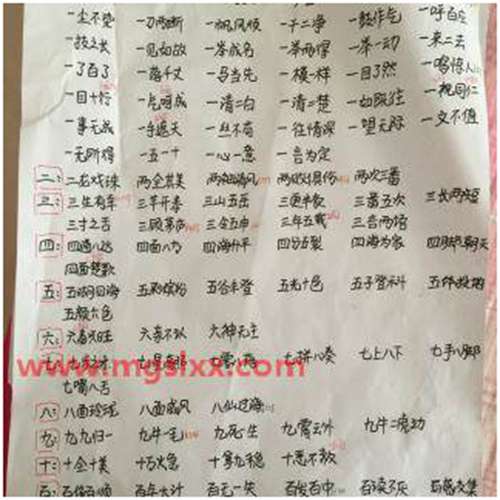 一尘不染 一刀两断 一帆风顺 一干二净 一鼓作气 一呼百应
一技之长 一见如故 一举成名 一举两得 一举一动 一来二去
一了百了 一落千丈 一马当先 一模一样 一目了然 一鸣惊人
一目十行 一气呵成 一清二白 一清二楚 一如既往 一视同仁
一事无成 一手遮天 一丝不苟 一往情深 一望无际 一文不值
一无所得 一五一十 一心一意 一言为定
二: 二龙戏珠 两全其美 两袖清风 两败俱伤 两次三番
三: 三生有幸 三羊开泰 三山五岳 三更半夜 三番五次 三长两短
三寸之舌 三顾茅庐 三令五申 三年五载 三言两语
四: 四通八达 四面八方 四海升平 四分五裂 四海为家 四脚朝天
四面楚歌
五: 五湖四海 五彩缤纷 五谷丰登 五光十色 五子登科 五体投地
五颜六色
六: 六畜兴旺 六亲不认 六神无主
www.mgslxx.com
七拼八凑 七上八下 七手八脚
七嘴八舌
八: 八面玲珑 八面威风 八仙过海
九: 九九归一 九牛一毛 九死一生 九霄云外 九牛二虎之力
十: 十全十美 十万火急 十拿九稳 十恶不赦
百: 百依百顺 百年大计 百发百中